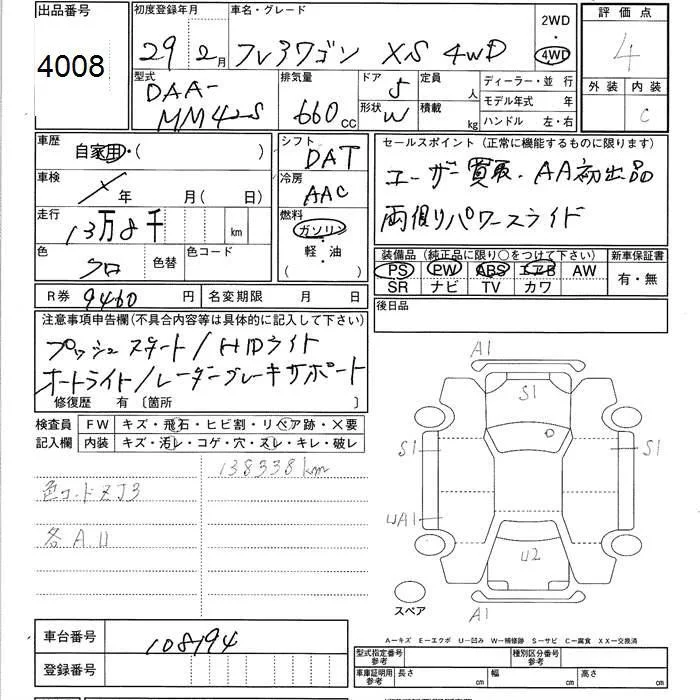 出品番号 初度登録年月 車名・グレード 2WD・4WD 評価点
4008 29年2月 フレアワゴン XS 4WD 4
型式 排気量 ドア 定員 ディーラー・並行 外装 内装
DAA- 5 人 モデル年式 年
MM42S 660cc 形状 W 積載 kg ハンドル 左・右 C
車歴 シフト セールスポイント (正常に機能するものに限ります)
自家用・( ) DAT ユーザー買取・AA初出品
車検 冷房 両側パワースライド
年 月( 日) AAC
走行 燃料
13万8千 km ガソリン
色 クロ 色替 色コード 軽・油
( )
装備品 (純正品に限り○をつけて下さい) 新車保証書
PS PW ABS エアB AW 有・無
SR ナビ TV カワ
R券 9460円 名変期限 月 日 後日品
注意事項申告欄(不具合内容等は具体的に記入して下さい)
プッシュスタート/HIDライト
オートライト/レーダーブレーキサポート
修復歴 有〔箇所 〕
検査員 FW キズ・飛石・ヒビ割・リペア跡・×要
記入欄 内装 キズ・汚レ・コゲ・穴・スレ・キレ・破レ
138338km
色コードZJ3
各A.U
A1
S1
S1 S1
UA1
U2
A1
スペア
A-キズ E-エクボ U-凹み W-補修跡 S-サビ C-腐食 XX-交換済
車台番号 108194
登録番号
型式指定番号 参考 種別区分番号 参考
車庫証明用 参考 長さ cm 幅 cm 高さ cm